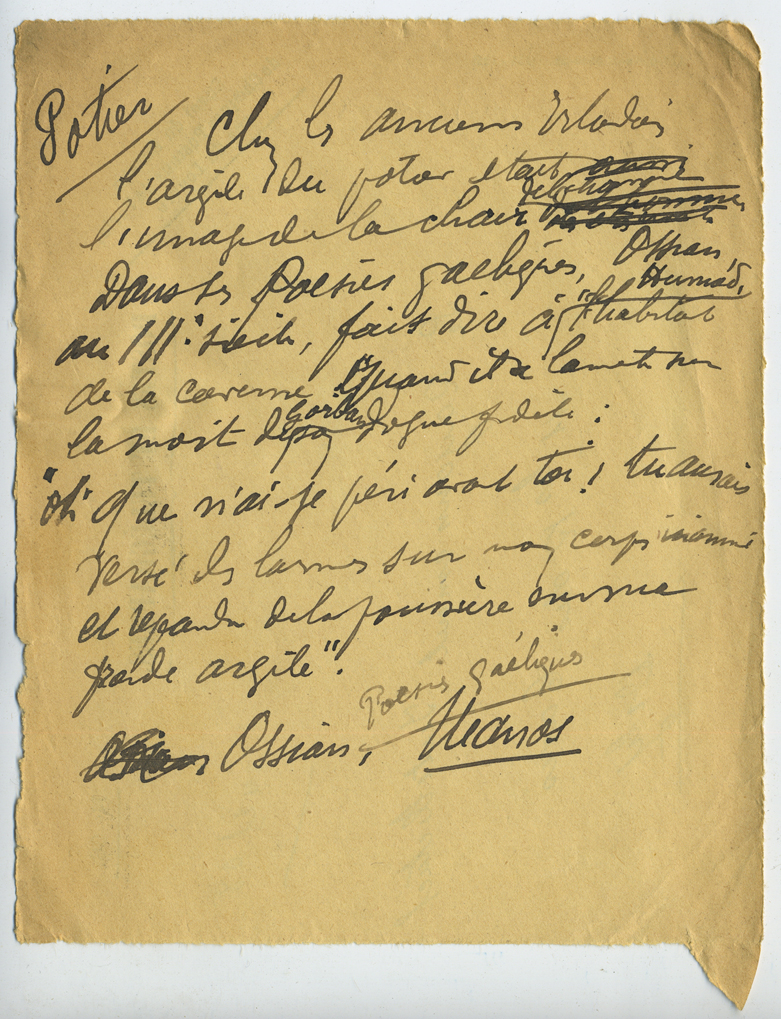 Potier
Chez les anciens Irlandais
l'argile du potier était aussi
l'image de la chair de l'homme
Dans les Poésies gaéliques, Ossian,
au IIIe siècle, fait dire à l'habitat
de la caverne, quand il se lamente sur
la mort de son dogue fidèle :
"oh que n'ai-je péri avant toi ! tu aurais
versé des larmes sur mon corps inanimé
et répandu de la poussière sur ma
froide argile".
Poésies gaéliques
Ossian,